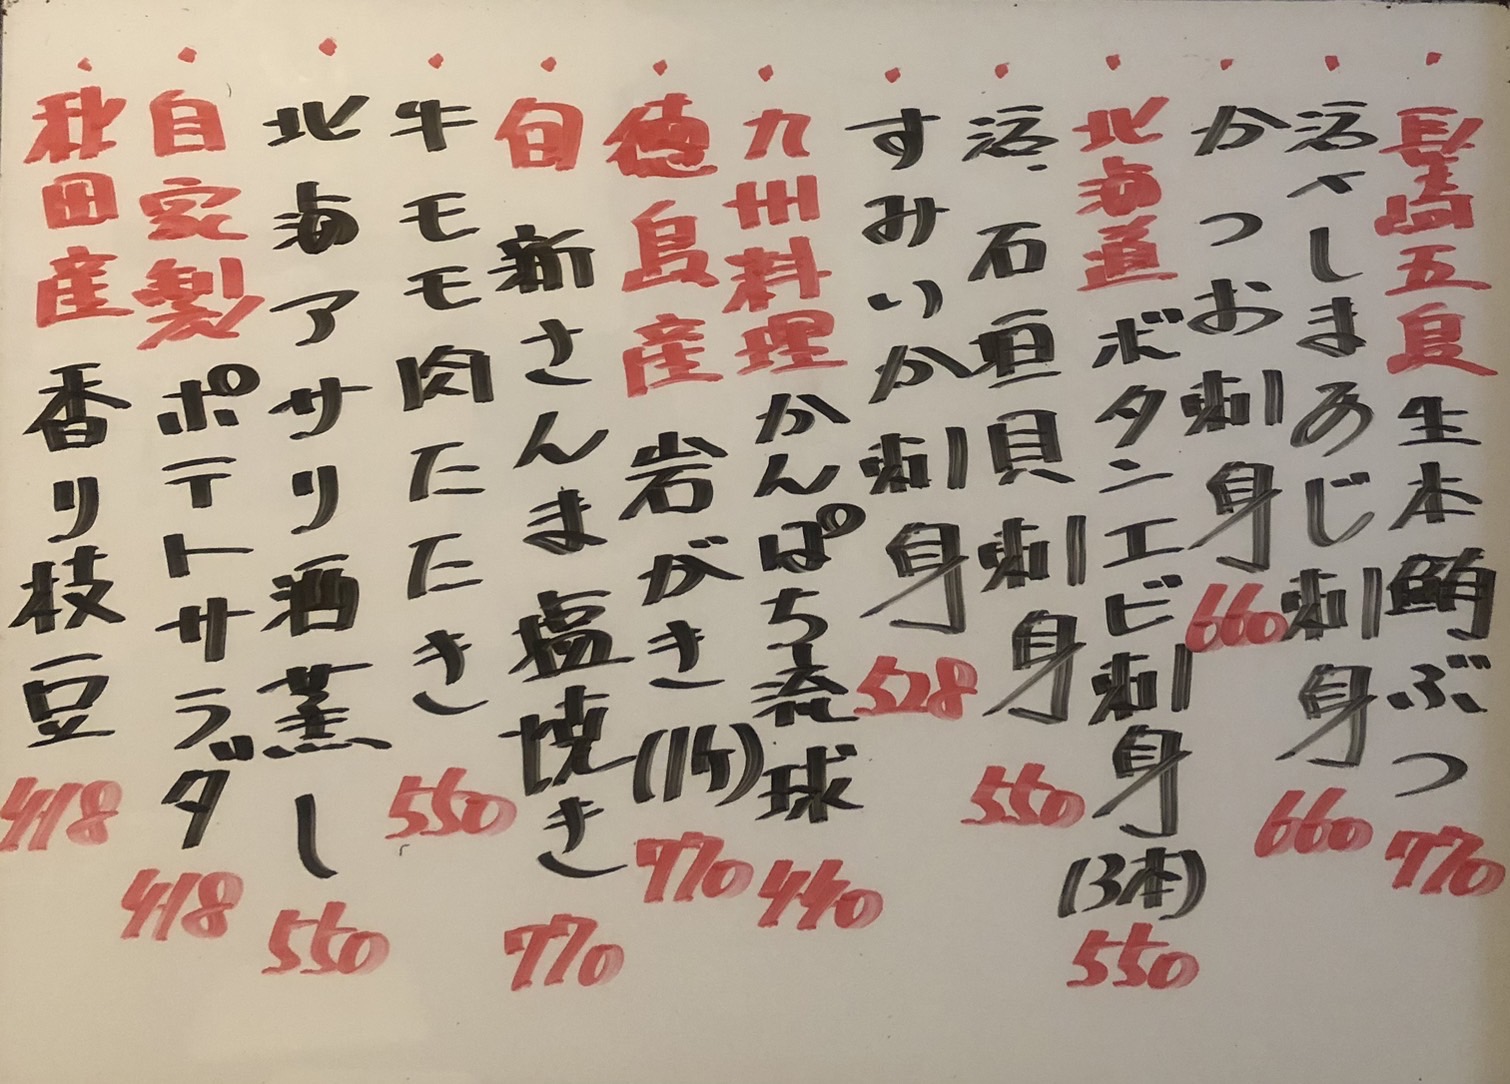 ・長崎五島 生本鮪ぶつ 770
・活〆しまあじ刺身 660
・かつお刺身 660
・北海道 ボタンエビ刺身(3本) 550
・活〆石垣貝刺身 550
・すみいか刺身 528
・九州料理 かんぱち琉球 440
・徳島産 岩がき(1ケ) 770
・旬 新さんま塩焼き 770
・牛モモ肉たたき 550
・北海アサリ酒蒸し 550
・自家製 ポテトサラダ 418
・秋田産 香り枝豆 418